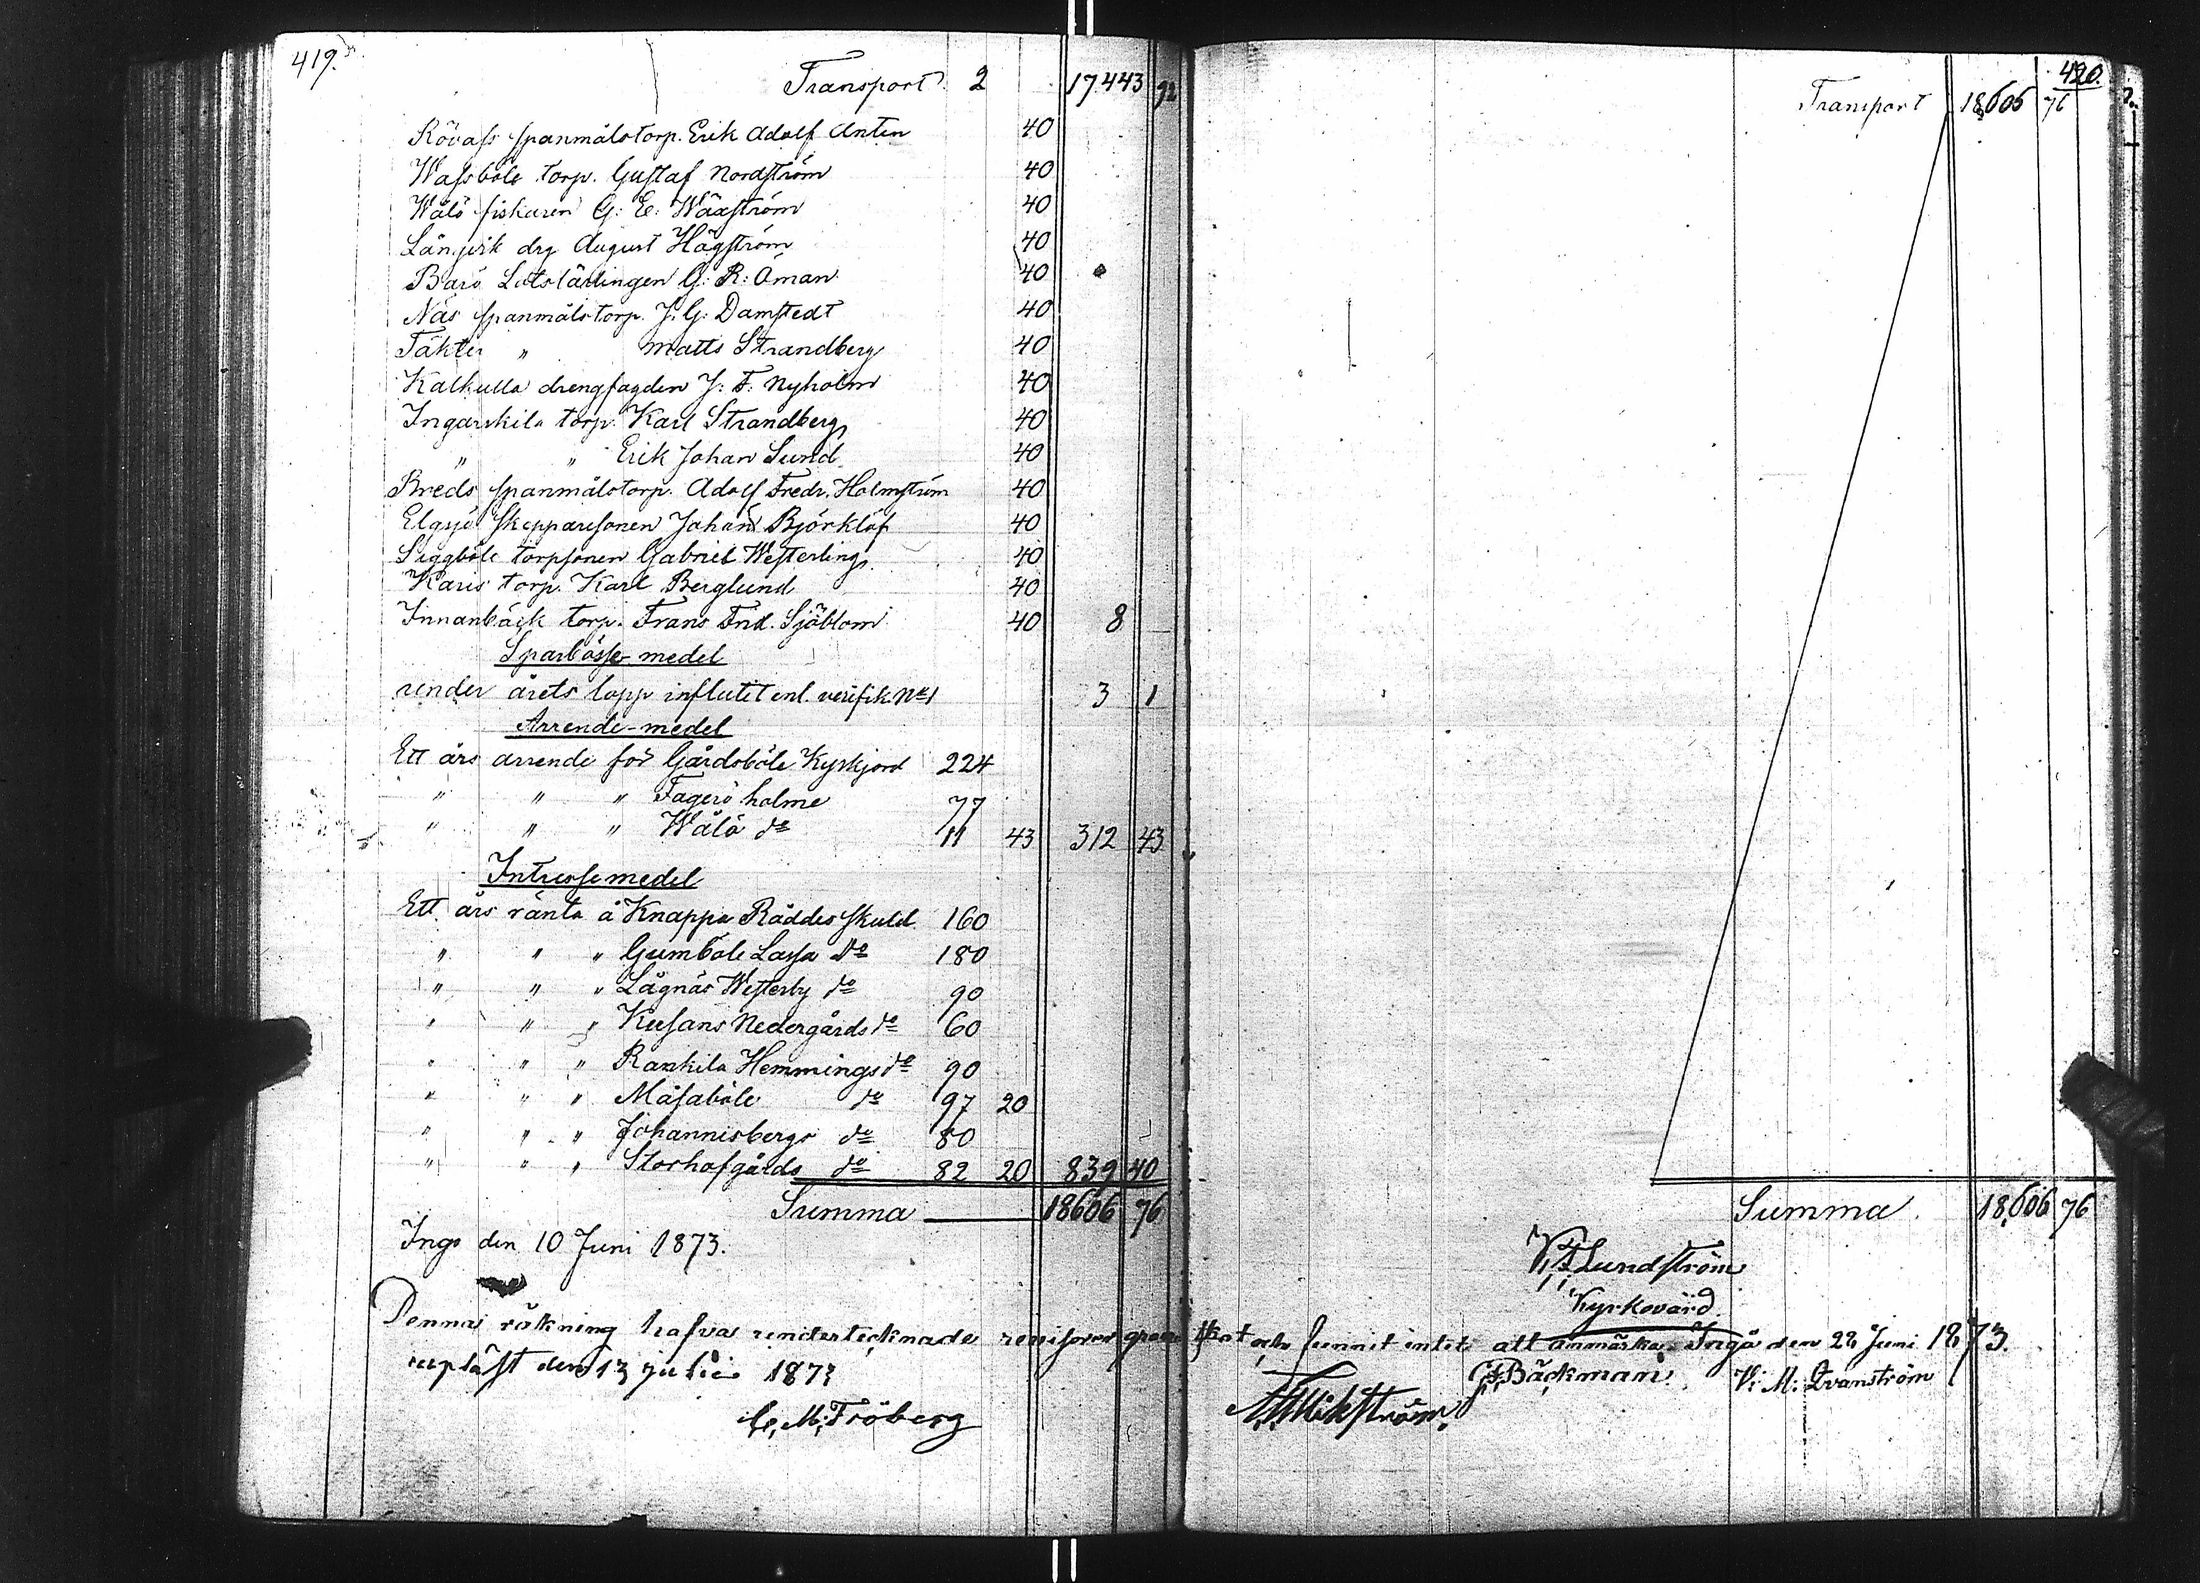 419.
Transport 2 17.443 92
Rövass spanmålstorp. Erik Adolf Antin 40
Wassböle torp. Gustaf Nordström 40
Wålö fiskaren G: E: Wäxström 40
Långvik drg August Högström 40
Barö Lotslärlingen G: R: Öman 40
Näs spanmålstorp. J: G: Damstedt 40
Täkter " Matts Strandberg 40
Kalkulla drengfogden J: F. Nyholm 40
Ingarskila torp. Karl Strandberg 40
" " Erik Johan Sund 40
Breds spanmålstorp. Adolf Fredr. Holmström 40
Elgsjö skepparesonen Johan Björklöf 40
Siggböle torpsonen Gabriel Westerling 40
Karis torp. Karl Berglund 40
Innanbäck torp. Frans Frd. Sjöblom 40 8
Sparbösse-medel
under årets lopp influtit enl. verifik. No 1 3 1
Arrende-medel
Ett års arrende för Gårdsböle Kyrkjord 224
" " " Fagerö holme 77
" " " Wålö do 11 43 312 43
Intressemedel
Ett års ränta å Knappa Räddes skuld 160
" " " Gumböle Lassa do 180
" " " Lågnäs Westerby do 90
" " " Kusans Nedergårds do 60
" " " Rankila Hemmings do 90
" " " Måsaböle do 97 20
" " " Johannisbergs do 80
" " " Storhofgårds do 82 20 839 40
Summa 18606 76
Ingo den 10 Juni 1873.
420.
Transport 18,606 76
Summa 18,606 76
V. F. Lundström
Kyrkovärd
Denna räkning hafva undertecknade revisorer granskat och funnit intet att anmärka. Ingå den 22 Juni 1873.
G. F. Bäckman V: M: Qvanström
A. F. Wikström
upläst den 13 julii 1873
C. M. Fröberg